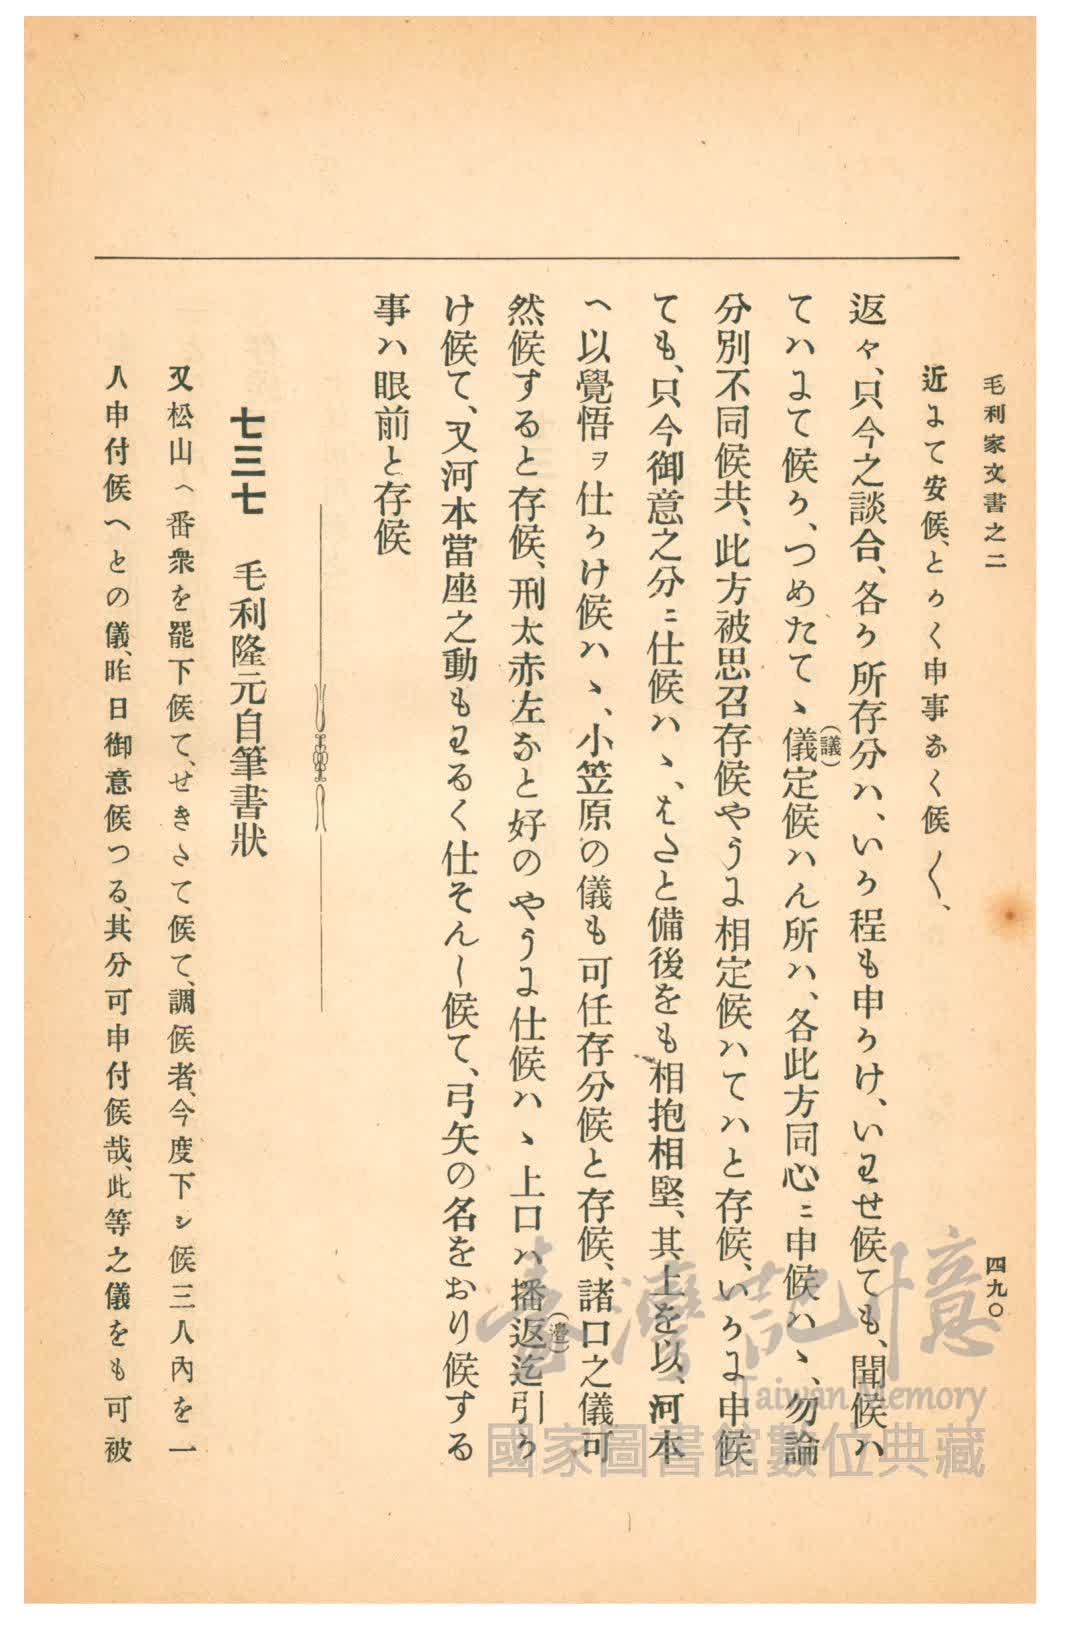 毛利家文書之二
四九〇
近にて安候、とかく申事なく候〱、
返々、只今之談合、各か所存分ハ、いか程も申かけ、いわせ候ても、聞候ハ
てハにて候か、つめたてゝ儀定候ハん所ハ、各此方同心ニ申候ハゝ、勿論
(議)
分別不同候共、此方被思召存候やうに相定候ハてハと存候、いかに申候
ても、只今御意之分ニ仕候ハゝ、はたと備後をも相抱相堅、其上を以、河本
へ以覺悟ヲ仕かけ候ハゝ、小笠原の儀も可任存分候と存候、諸口之儀可
然候すると存候、刑太赤左なと好のやうに仕候ハゝ上口ハ播返迄引か
(邊)
け候て、又河本當座之動もわるく仕そんし候て、弓矢の名をおり候する
事ハ眼前と存候
七三七　毛利隆元自筆書狀
又松山へ番衆を罷下候て、せきたて候て、調候者、今度下シ候三人內を一
人申付候へとの儀、昨日御意候つる、其分可申付候哉、此等之儀をも可被
臺灣記憶
Taiwan Memory
國家圖書館數位典藏